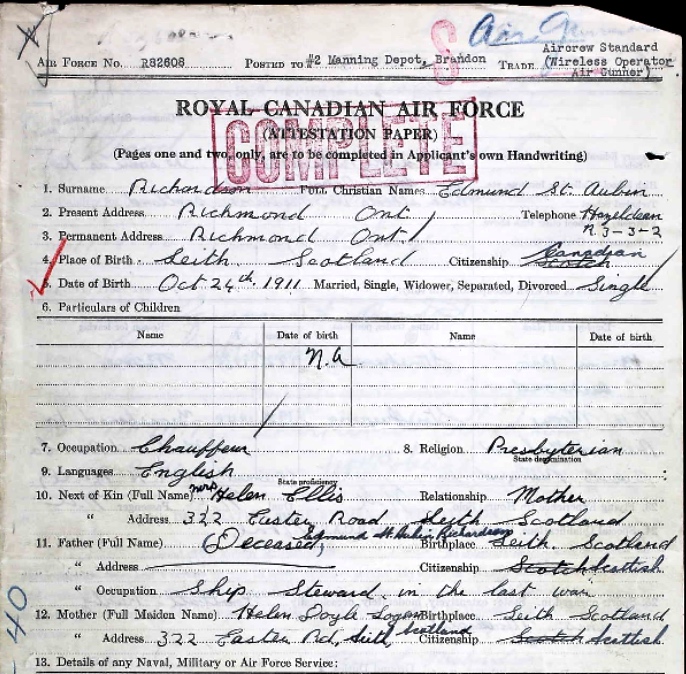 Air
AIR FORCE NO. R82608 POSTED TO #2 Manning Depot, Brandon TRADE Aircrew Standard
(Wireless Operator
Air Gunner)
S
ROYAL CANADIAN AIR FORCE
COMPLETE
(ATTESTATION PAPER)
(Pages one and two, only, are to be completed in Applicant's own Handwriting)
1. Surname Richardson Full Christian Names Edmund St. Aubin
2. Present Address Richmond Ont Telephone Hazeldean
R 3-3-2
3. Permanent Address Richmond Ont
4. Place of Birth Leith Scotland Citizenship Scotch Canadian
5. Date of Birth Oct 24th. 1911 Married, Single, Widower, Separated, Divorced Single
6. Particulars of Children
Name Date of birth Name Date of birth
N.A
7. Occupation Chauffeur 8. Religion Presbyterian
State denomination
9. Languages English
State proficiency
10. Next of Kin (Full Name) Mrs Helen Ellis Relationship Mother
" Address 322 Easter Road Leith Scotland
11. Father (Full Name) (Deceased) Edmund St. Aubin Richardson Birthplace Leith. Scotland
" Address Citizenship Scotch Scottish
" Occupation Ship Steward in the last war
12. Mother (Full Maiden Name) Helen Doyle Logan Birthplace Leith Scotland
" Address 322 Easter Rd, Leith, Scotland Citizenship Scotch Scottish
13. Details of any Naval, Military or Air Force Service:
- 40